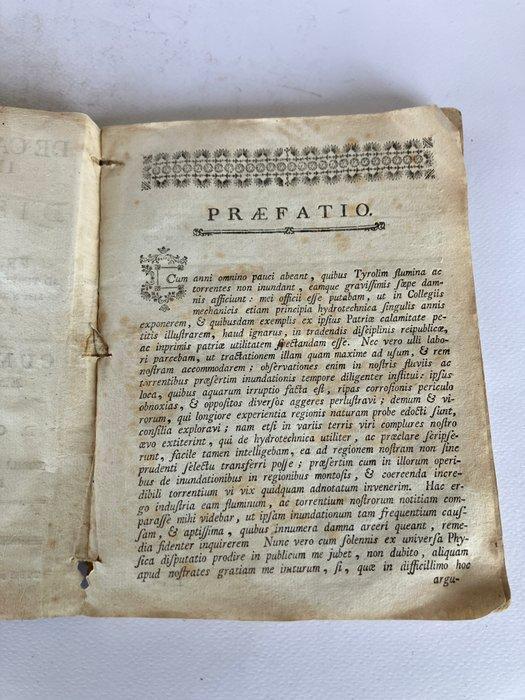 PRÆFATIO.
Cum anni omnino pauci abeant, quibus Tyrolim flumina ac
torrentes non inundant, eamque gravissimis sæpe dam-
nis afficiunt: mei officii esse putabam, ut in Collegiis
mechanicis etiam principia hydrotechnica singulis annis
exponerem, & quibusdam exemplis ex ipsius Patriæ calamitate pe-
titis illustrarem, haud ignarus, in tradendis disciplinis reipublicæ,
ac inprimis patriæ utilitatem spectandam esse. Nec vero ulli labo-
ri parcebam, ut tractationem illam quam maxime ad usum, & rem
nostram accommodarem; observationes enim in nostris fluviis ac
torrentibus præsertim inundationis tempore diligenter institui: ipsus
loca, quibus aquarum irruptio facta est, ripas corrosionis periculo
obnoxias, & oppositos diversos aggeres perlustravi; demum & vi-
rorum, qui longiore experientia regionis naturam probe edocti sunt,
consilia exploravi; nam etsi in variis terris viri complures nostro
ævo extiterint, qui de hydrotechnica utiliter, ac præclare scripse-
runt, facile tamen intellegebam, ea ad regionem nostram non sine
prudenti selectu transferri posse; præsertim cum in illorum operi-
bus de inundationibus in regionibus montosis, & coercenda incre-
dibili torrentium vi vix quidquam adnotatum invenerim. Hac er-
go industria eam fluminum, ac torrentium nostrorum notitiam com-
parasse mihi videbar, ut ipsam inundationum tam frequentium caus-
sam, & aptissima, quibus innumera damna arceri queant, reme-
dia fidenter inquirerem Nunc vero cum solennis ex universa Phy-
sica disputatio prodire in publicum me jubet, non dubito, aliquam
apud nostrates gratiam me initurum, si, quæ in difficillimo hoc
argu-